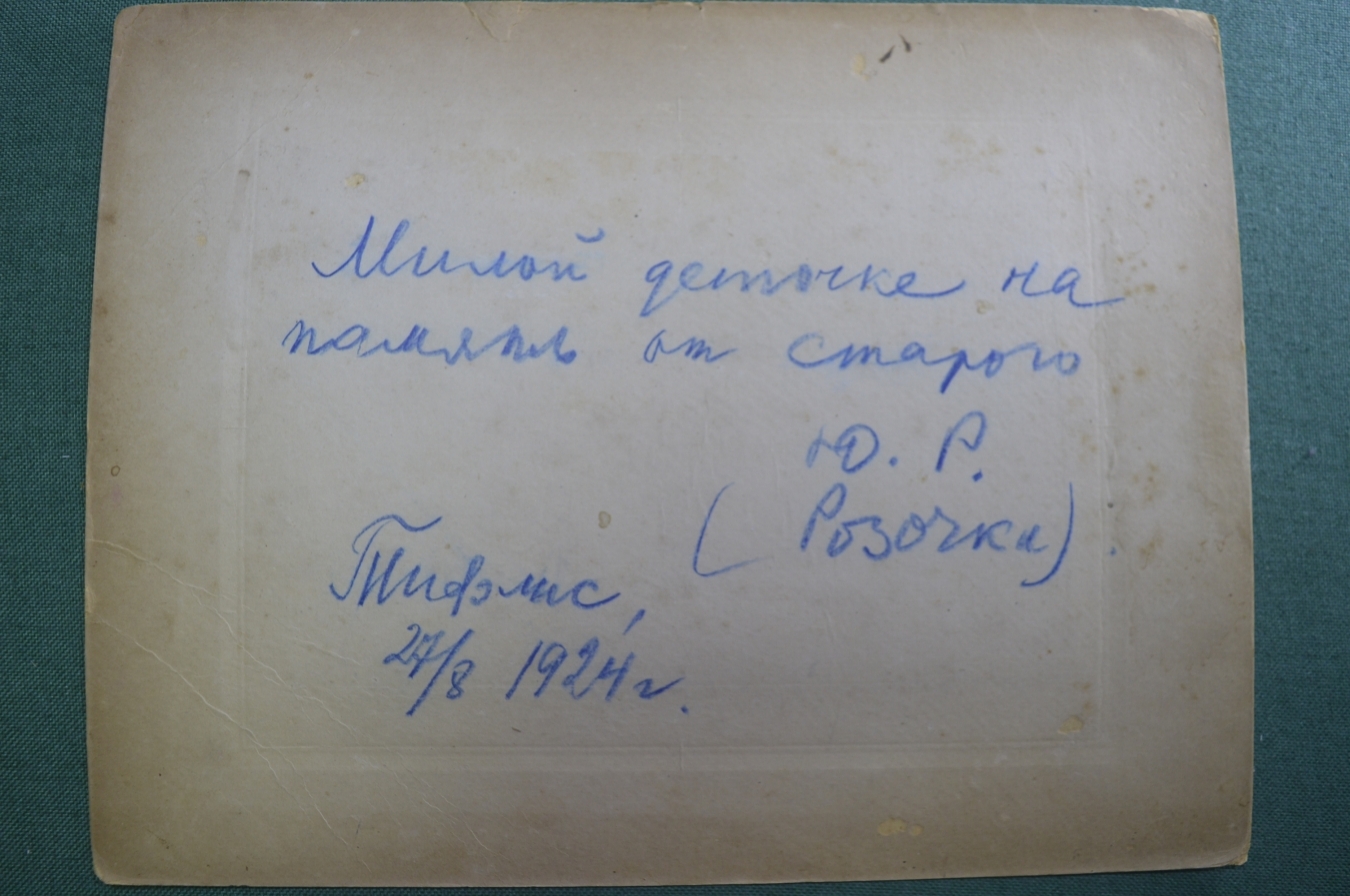 Милой деточке на
память от старого
Ю. Р.
(Розочка).
Тифлис,
27/8 1924 г.